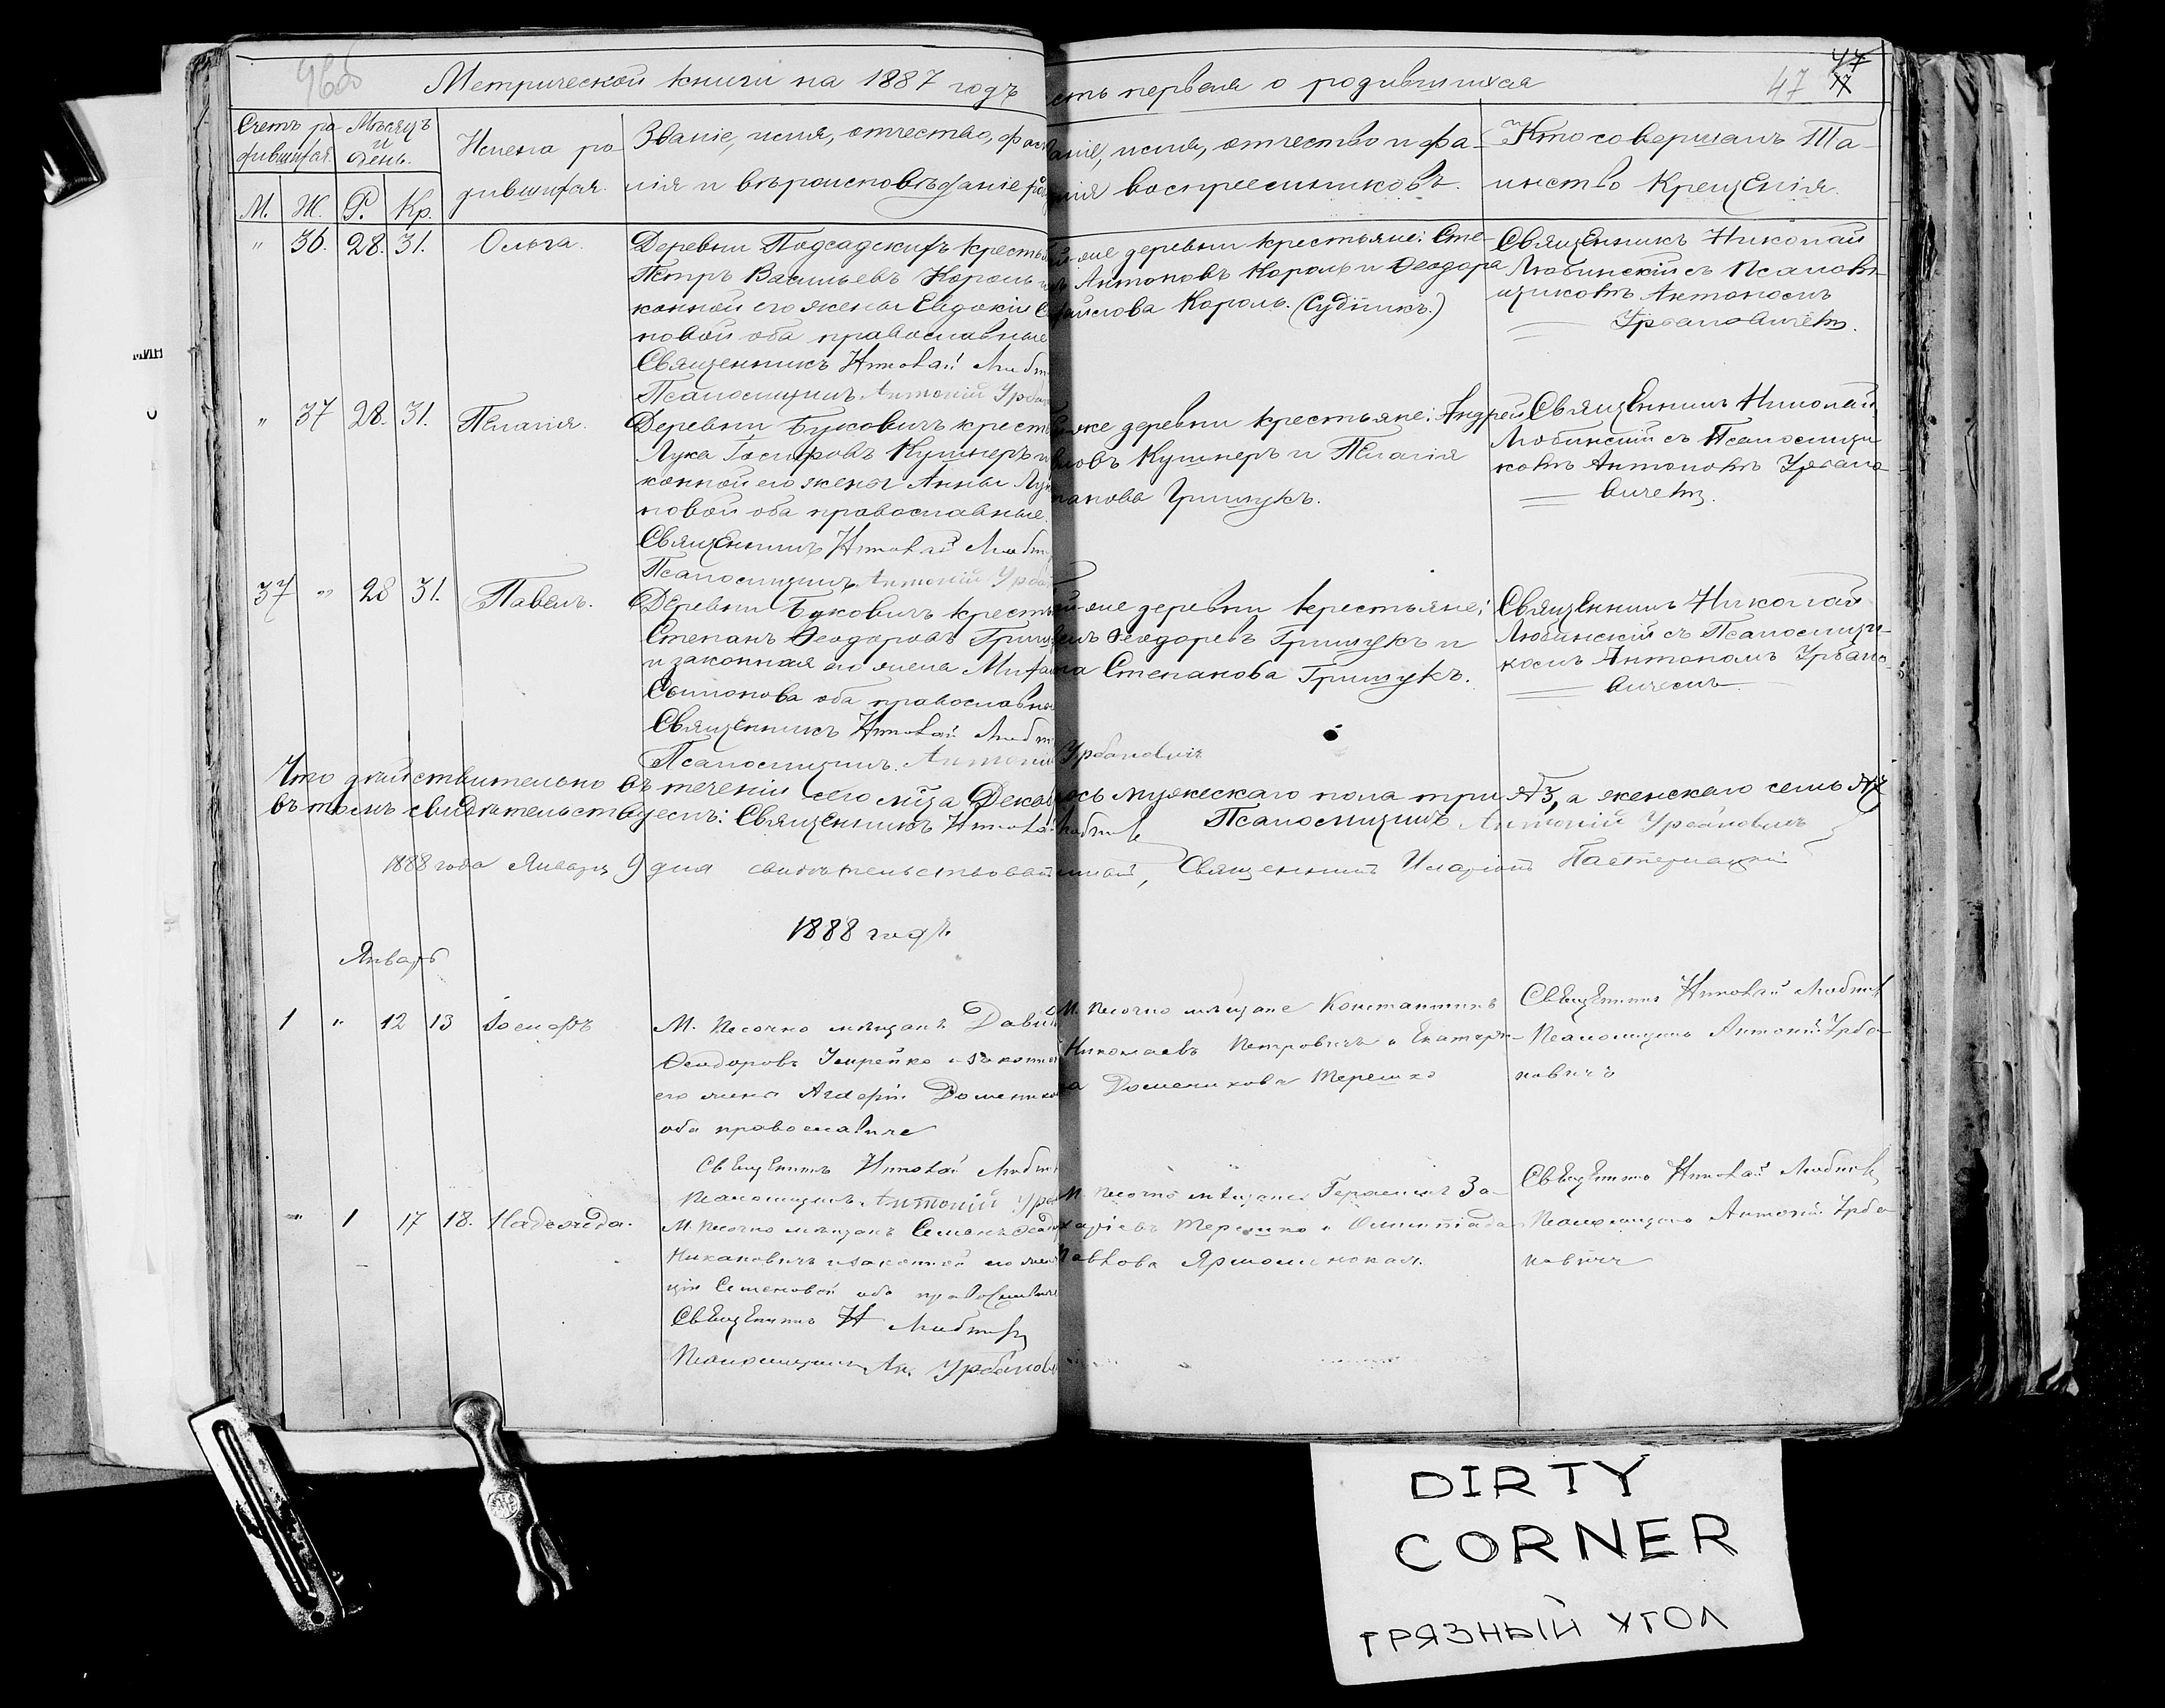 Метрической книги на 1887 годъ
сть первая о родившихся
47
47
Счетъ ро
дившихся.
Мѣсяцъ
и
день.
М. Ж. Р. Кр.
Имена ро-
дившихся.
Званіе, имя, отчество, фами
лія и вѣроисповѣданіе ро
аніе, имя, отчество и фа-
милія воспреемниковъ.
Кто совершалъ Та-
инство Крещенія.
" 36. 28. 31. Ольга.
Деревни Подсадскихъ крестья
Петръ Васильевъ Король и
конной его жены Евдокіи С
новой оба православные
Священникъ Николай Люби
Псаломщикъ Антоній Урбан
же деревни крестьяне: Сте-
Антоновъ Король и Ѳеодора
Король. (Судникъ.)
Священникъ Николай
Любинскій съ Псаломъ-
щикомъ Антономъ
Урбановичемъ.
" 37 28. 31. Пелагія.
Деревни Буковичъ крест
Лука Гаспровъ Кушнеръ и
конной его жены Анны Лук
новой оба православные.
Священникъ Николай Люби
Псаломщикъ Антоній Урба
же деревни крестьяне: Андрей
новъ Кушнеръ и Пелагія
панова Грищукъ.
Священникъ Николай
Любинскій съ Псаломщи-
комъ Антономъ Урбано-
вичемъ.
37 " 28 31. Павелъ.
Деревни Буковичъ крестья
Степанъ Ѳеодоровъ Грищ
и законная его жена
Симонова оба православны
Священникъ Николай Люби
Псаломщикъ Антоній Урбановичъ
же деревни крестьяне;
Ѳеодоровъ Грищукъ и
на Степанова Грищукъ.
Священникъ Николай
Любинскій съ Псаломщи-
комъ Антономъ Урбано-
вичемъ
Что дѣйствительно въ теченіи сего м-ца Дека
ось мужескаго пола три №3, а женскаго семь №7
въ томъ свидѣтельствуемъ: Священникъ Николай Любинск
Псаломщикъ Антоній Урбановичъ
1888 года Января 9 дня свидѣтельствовалъ
Священникъ Иларіонъ Пастернацкій
1888 годъ
Январь
1 " 12 13 Іосифъ
М. Песочно мѣщанъ Давид
Ѳеодоровъ и законной
его жены Домеников
оба православные
Священникъ Николай Любин
Псаломщикъ Антоній Урба
М. Песочно мѣщане Константинъ
Николаевъ Петровичъ и Екатери-
на Доменикова Терешко
Священникъ Николай Любинск
Псаломщикъ Антоній Урба-
новичъ
" 1 17 18. Надежда.
М. Песочно мѣщанъ Семенъ Ѳеод
Никановичъ и законной его жены
ціи Семеновой оба православные
Священникъ Н Любинск
Псаломщикъ Ан. Урбанов
М. Песочно мѣщане Герасимъ За-
харіевъ Терешко и Олимпіада
Павлова Ярмолинская.
Священникъ Николай Любинск
Псаломщикъ Антоній Урба-
новичъ
DIRTY
CORNER
ГРЯЗНЫЙ УГОЛ